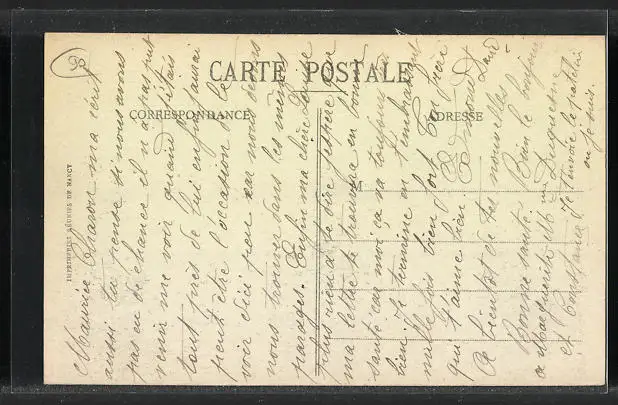 CARTE POSTALE
CORRESPONDANCE
ADRESSE
M
IMPRIMERIES RÉUNIES DE NANCY
Maurice Charon m'a écrit
aussi tu pense si nous avons
pas eu de chance il n'a pas put
venir me voir quand j'étais
tout près de lui enfin j'aurai
peut être l'occasion de le
voir d'ici peu car nous devons
nous trouver dans les mêmes
parages. Enfin ma chère
plus rien a te dire j'espère que
ma lettre te trouvera en bonne
santé car moi ça va toujours
bien. Je termine en t'embrassant
mille fois bien fort Ton frère
qui t'aime bien
A bientôt de tes nouvelles
Bonne santé. Bien le bonjour
a Marguerite Duquesne
et Constant Je t'envoie le
ou je suis.